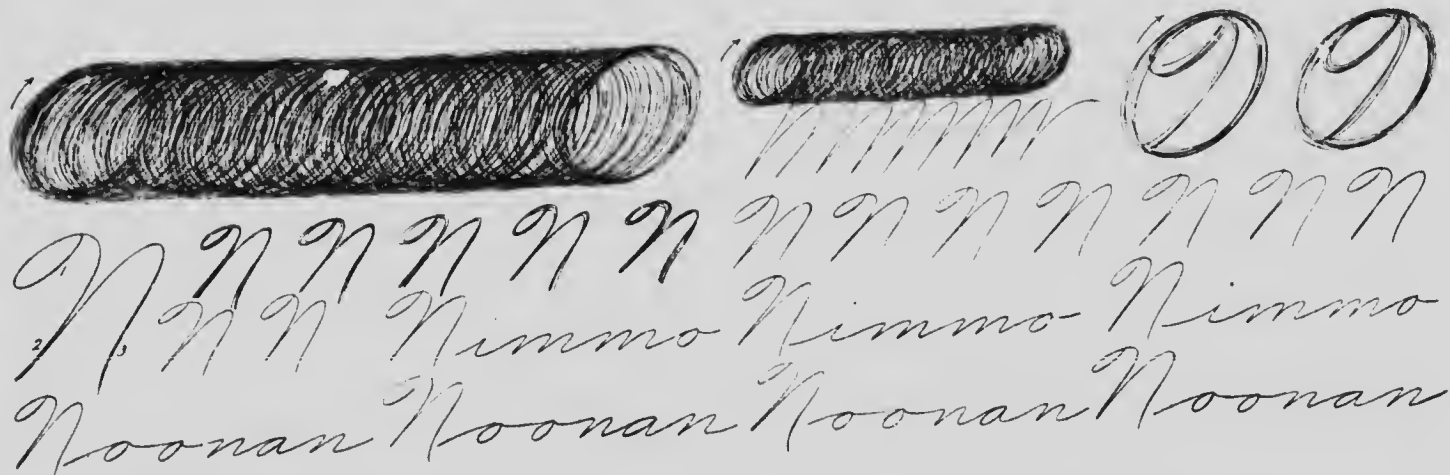 N N N N N N N N N N N N N
1
2 3 N N Nimmo Nimmo Nimmo
Noonan Noonan Noonan Noonan